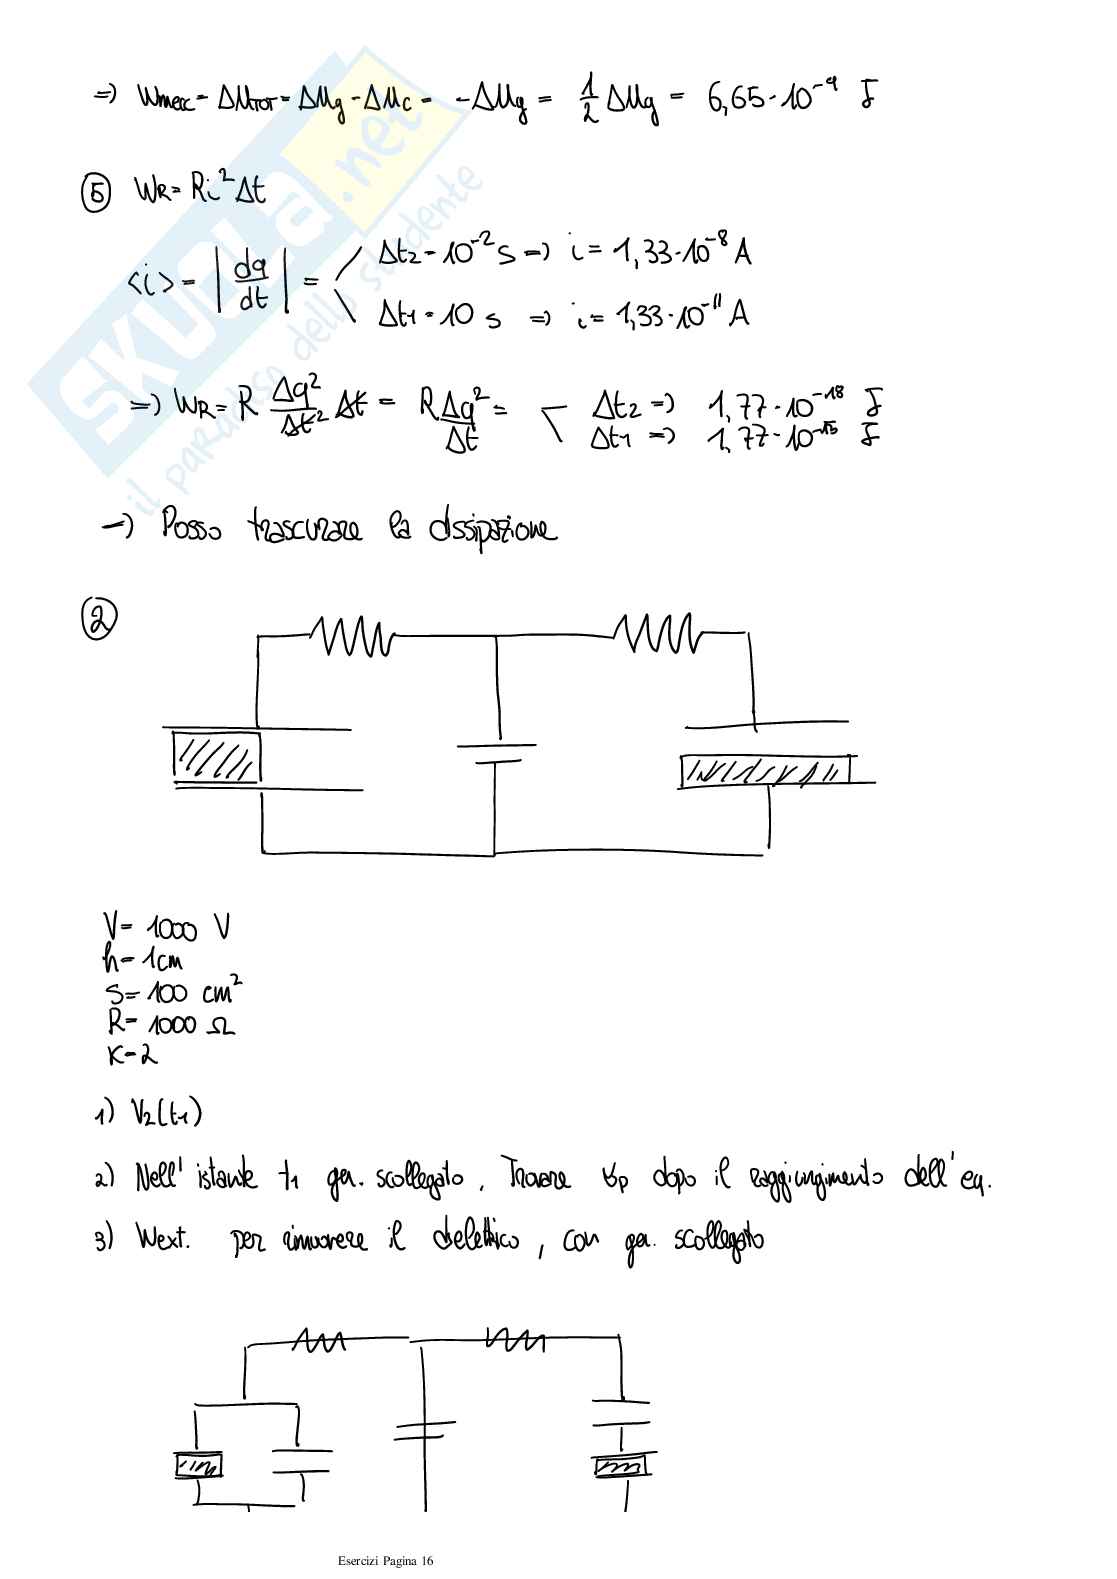 => Wmecc = ΔUTOT = ΔUg - ΔUc = -ΔUg = 1/2 ΔUg = 6,65·10⁻⁴ J
⑤ WR = Ri²Δt
<i> = |dq/dt| = < Δt2 = 10⁻² s => i = 1,33·10⁻⁸ A
Δt1 = 10 s => i = 1,33·10⁻¹¹ A
=> WR = R Δq²/Δt² Δt = R Δq²/Δt = < Δt2 => 1,77·10⁻¹⁸ J
Δt1 => 1,77·10⁻¹⁵ J
-> Posso trascurare la dissipazione
②
V = 1000 V
h = 1cm
S = 100 cm²
R = 1000 Ω
K = 2
1) V2(t1)
2) Nell' istante t1 gen. scollegato, Trovare σp dopo il raggiungimento dell' eq.
3) Wext. per rimuovere il dielettrico, con gen. scollegato
Esercizi Pagina 16
SKUOLA.net
il paradiso dello studente